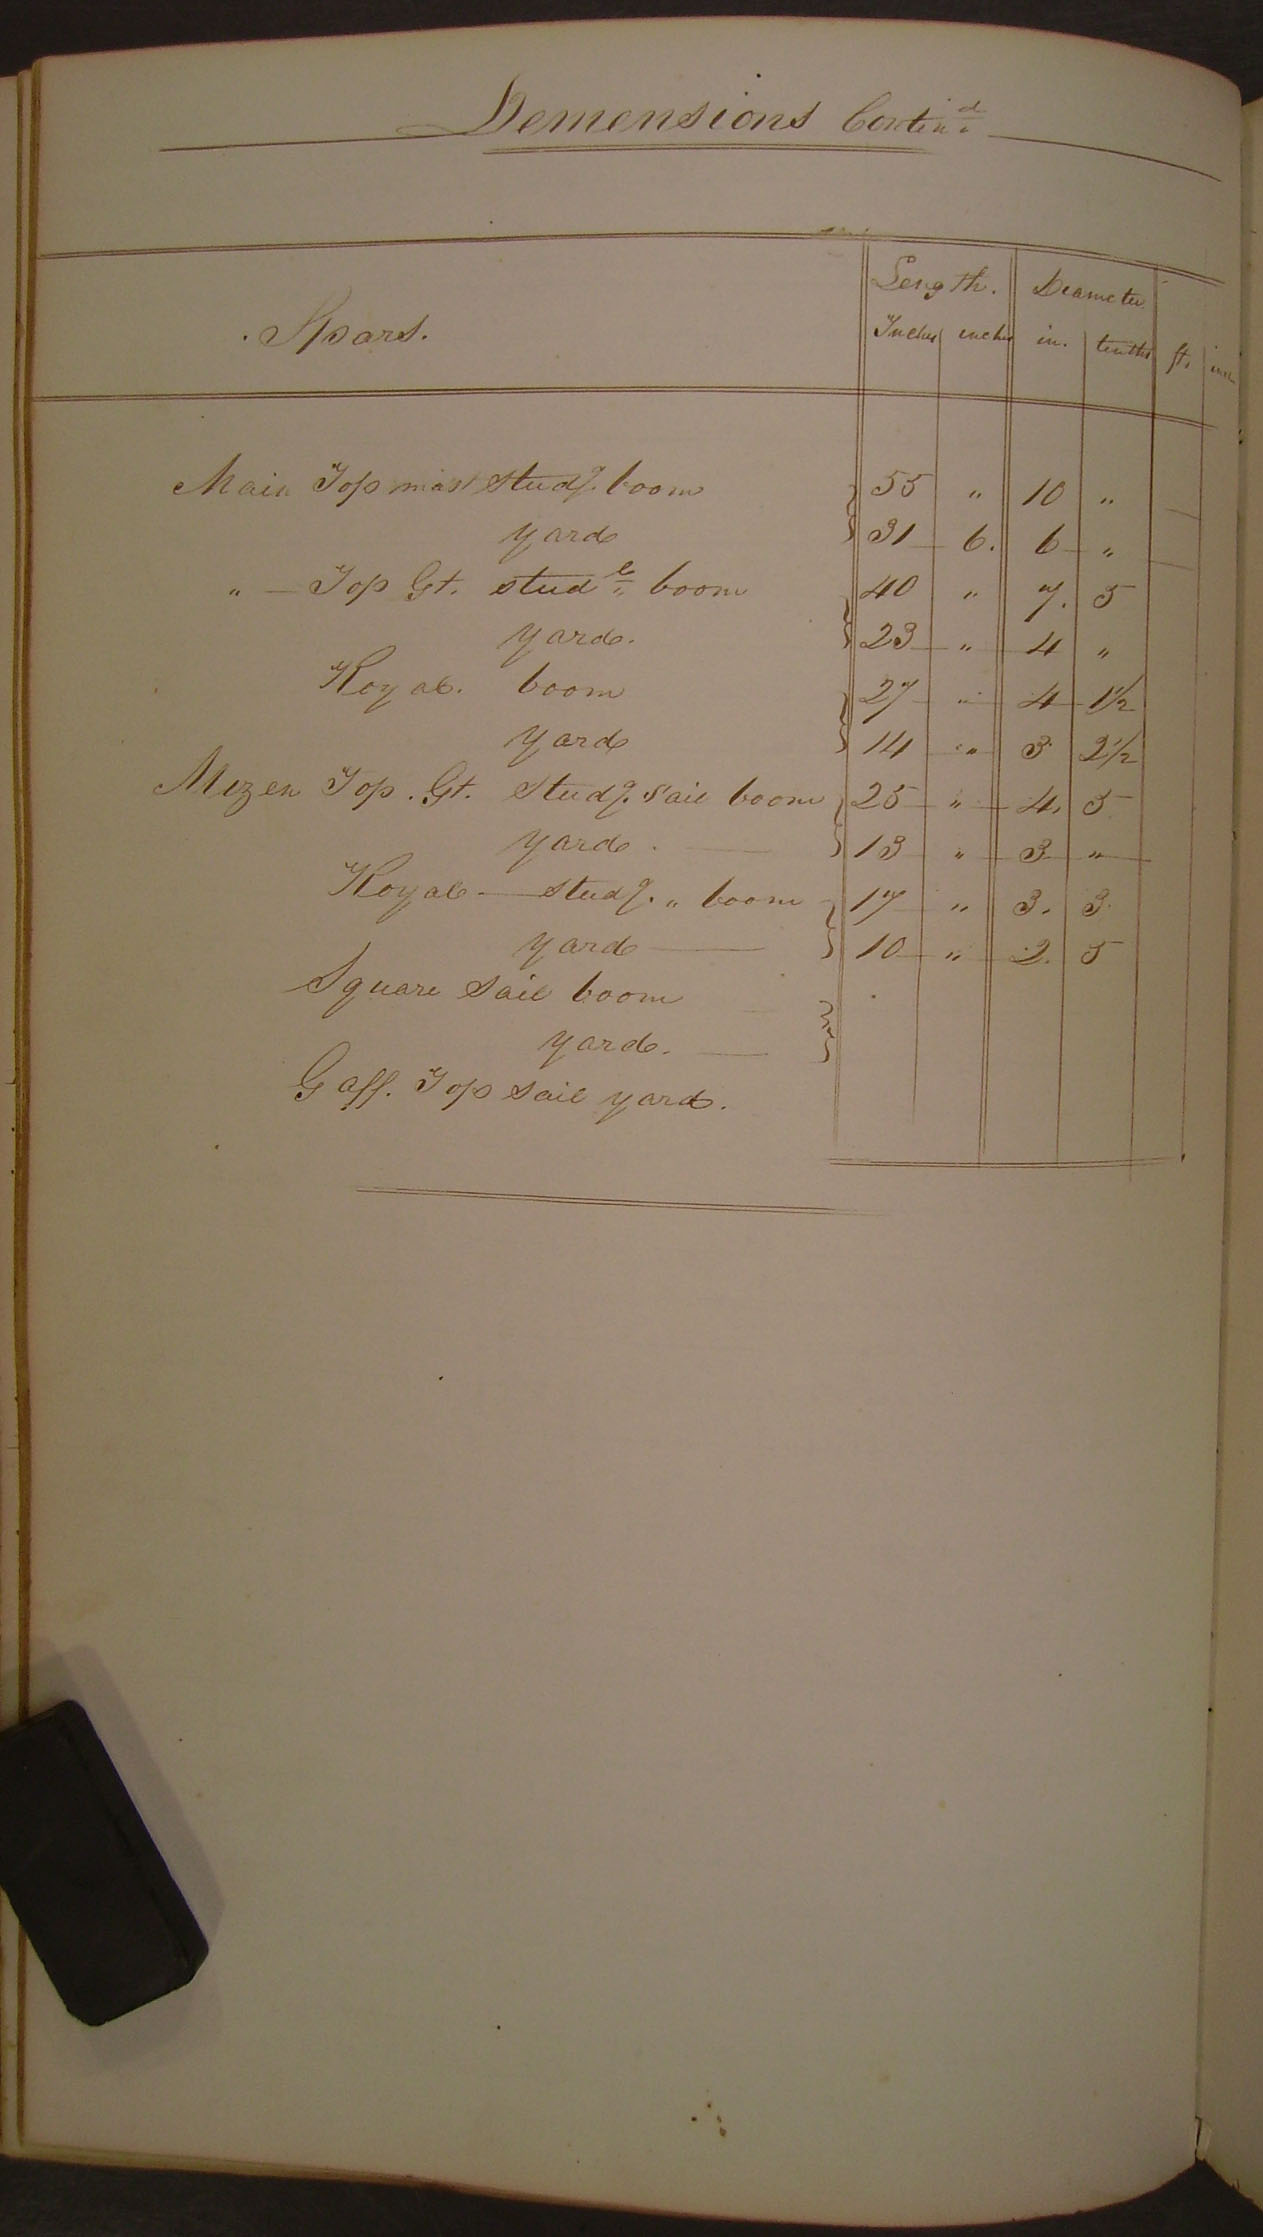 Demensions Contin.d
Length. Diameter
. Spars. Inches inches in. tenths ft. inch
Main Top mast studg. boom 55 " 10 "
yard 31 6. 6 "
" Top Gt. studg. boom 40 " 7. 5
yard. 23 " 4 "
Royal. boom 27 " 4 1½
yard 14 " 3 2½
Mizen Top. Gt. Studg. Sail boom 25 " 4. 5
yard. 13 " 3 "
Royal studg. " boom 17 " 3. 3
yard 10 " 2. 5
Square Sail boom
yard.
Gaff. Top Sail yard.